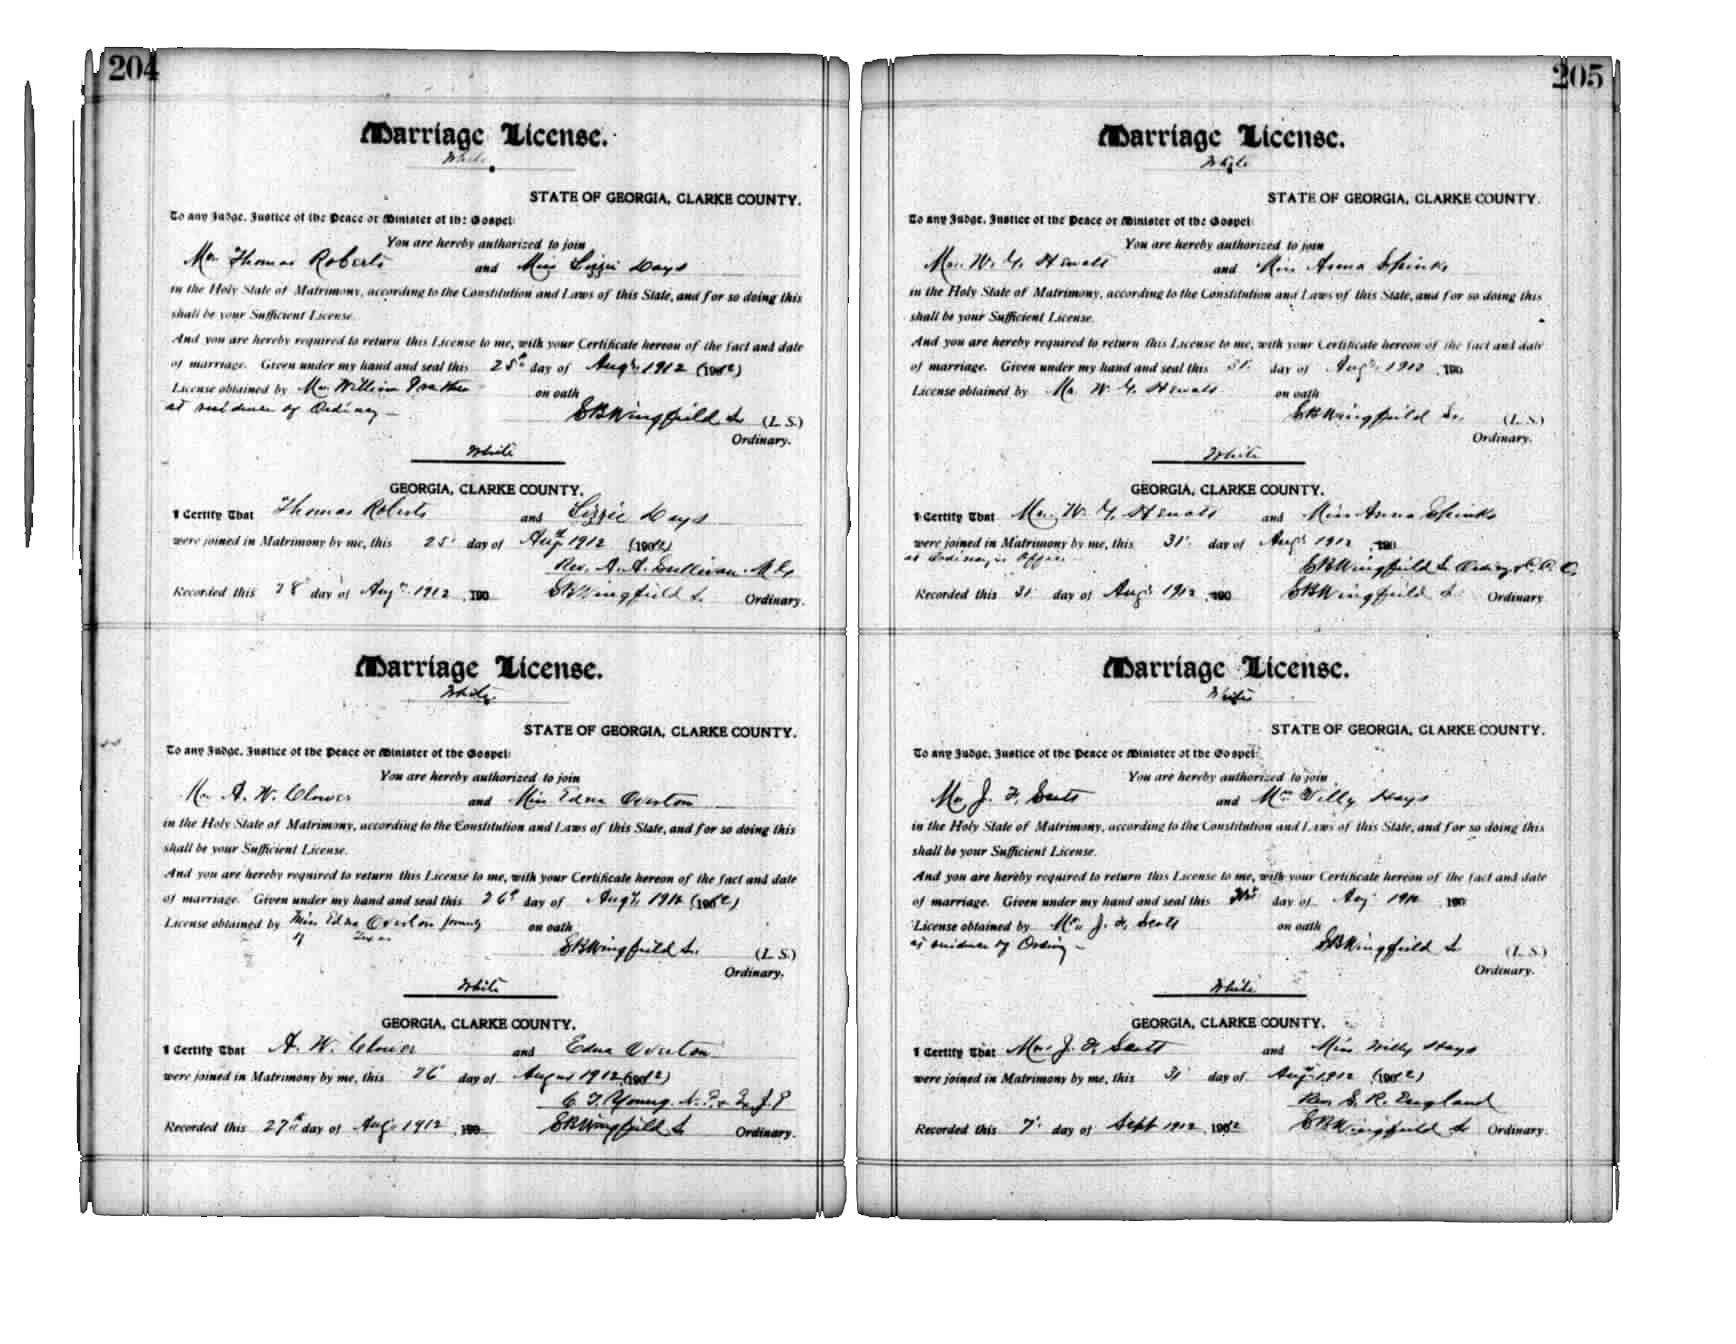 204
Marriage License.
White
STATE OF GEORGIA, CLARKE COUNTY.
To any Judge, Justice of the Peace or Minister of the Gospel:
You are hereby authorized to join
Mr. Thomas Roberts and Miss Lizzie Hays
in the Holy State of Matrimony, according to the Constitution and Laws of this State, and for so doing this
shall be your Sufficient License.
And you are hereby required to return this License to me, with your Certificate hereon of the fact and date
of marriage. Given under my hand and seal this 25th day of Aug. 1912 (1912)
License obtained by Mr. William on oath
at residence of Ordinary —
S B Wingfield Sr. (L. S.)
Ordinary.
White
GEORGIA, CLARKE COUNTY.
I Certify That Thomas Roberts and Lizzie Hays
were joined in Matrimony by me, this 25 day of Aug 1912 (1912)
Rev. A. A. Sullivan M.G.
Recorded this 28 day of Aug. 1912, 190 S B Wingfield Sr. Ordinary.
Marriage License.
White
STATE OF GEORGIA, CLARKE COUNTY.
To any Judge, Justice of the Peace or Minister of the Gospel:
You are hereby authorized to join
Mr. A. W. Clower and Miss Edna Overton
in the Holy State of Matrimony, according to the Constitution and Laws of this State, and for so doing this
shall be your Sufficient License.
And you are hereby required to return this License to me, with your Certificate hereon of the fact and date
of marriage. Given under my hand and seal this 26th day of Aug. 1912 (1912)
License obtained by Miss Edna Overton formerly on oath
of Texas
S B Wingfield Sr. (L. S.)
Ordinary.
White
GEORGIA, CLARKE COUNTY.
I Certify That A. W. Clower and Edna Overton
were joined in Matrimony by me, this 26 day of August 1912 (1912)
C. T. Young. N. P. & Ex. J. P
Recorded this 27th day of Aug. 1912, 190 S B Wingfield Sr Ordinary.
205
Marriage License.
White
STATE OF GEORGIA, CLARKE COUNTY.
To any Judge, Justice of the Peace or Minister of the Gospel:
You are hereby authorized to join
Mr. W. Y. and Miss Anna Spinks
in the Holy State of Matrimony, according to the Constitution and Laws of this State, and for so doing this
shall be your Sufficient License.
And you are hereby required to return this License to me, with your Certificate hereon of the fact and date
of marriage. Given under my hand and seal this 31 day of Aug. 1912, 190
License obtained by Mr. W. Y. on oath
S B Wingfield Sr. (L. S.)
Ordinary.
White
GEORGIA, CLARKE COUNTY.
I Certify That Mr. W. Y. and Miss Anna Spinks
were joined in Matrimony by me, this 31 day of Aug. 1912, 190
at Ordinary's Office
S B Wingfield Sr Ordinary C. C.
Recorded this 31 day of Aug. 1912, 190 S B Wingfield Sr Ordinary
Marriage License.
White
STATE OF GEORGIA, CLARKE COUNTY.
To any Judge, Justice of the Peace or Minister of the Gospel:
You are hereby authorized to join
Mr. J. F. Scott and Willy Hays
in the Holy State of Matrimony, according to the Constitution and Laws of this State, and for so doing this
shall be your Sufficient License.
And you are hereby required to return this License to me, with your Certificate hereon of the fact and date
of marriage. Given under my hand and seal this 31st day of Aug. 1912, 190
License obtained by Mr. J. F. Scott on oath
at residence of Ordinary —
S B Wingfield Sr (L. S.)
Ordinary.
White
GEORGIA, CLARKE COUNTY.
I Certify That Mr. J. F. Scott and Miss Willy Hays
were joined in Matrimony by me, this 31 day of Aug. 1912 (1912)
Rev. S. R. England
Recorded this 7 day of Sept 1912, 1912 S B Wingfield Sr Ordinary.